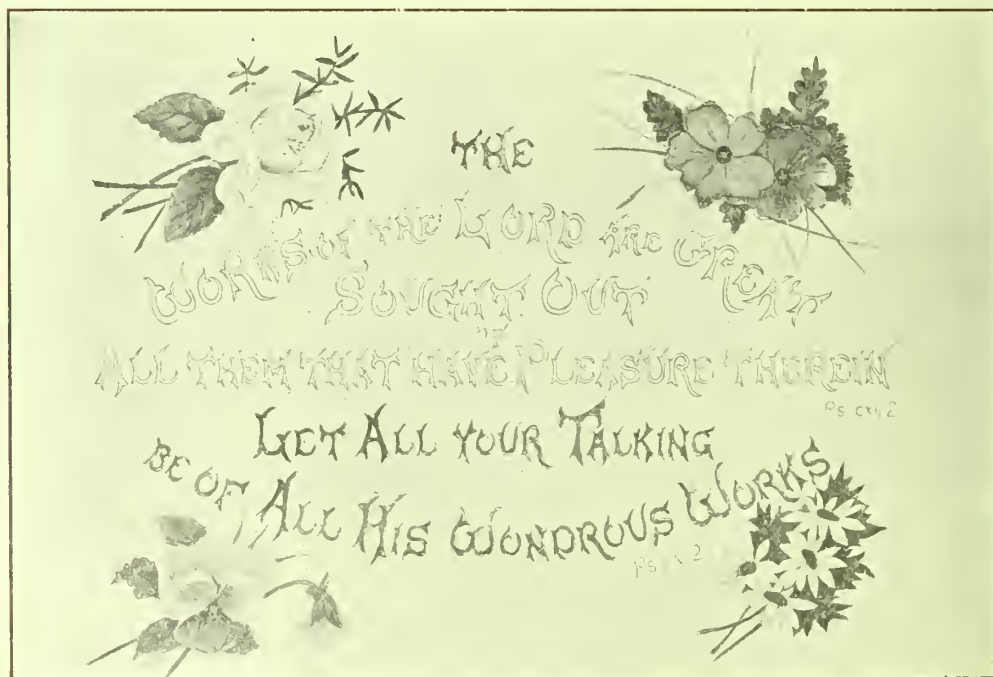 THE
WORKS OF THE LORD ARE GREAT
SOUGHT OUT
ALL THEM THAT HAVE PLEASURE THEREIN
LET ALL YOUR TALKING
BE OF ALL HIS WONDROUS WORKS